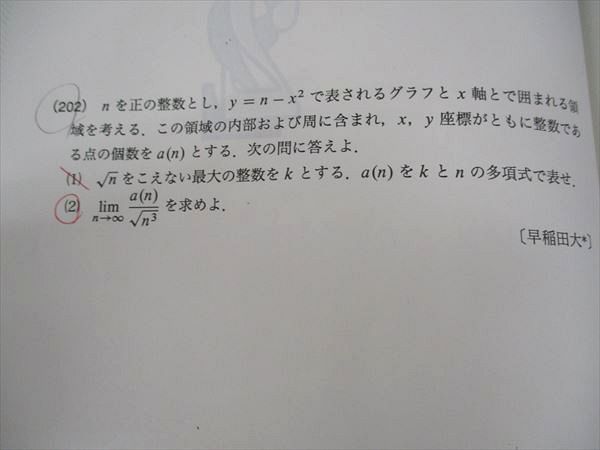 (202) n を正の整数とし，y = n − x² で表されるグラフと x 軸とで囲まれる領
域を考える．この領域の内部および周に含まれ，x，y 座標がともに整数であ
る点の個数を a(n) とする．次の問に答えよ．
(1) √n をこえない最大の整数を k とする．a(n) を k と n の多項式で表せ．
(2) lim_{n→∞} a(n)/√n³ を求めよ．
〔早稲田大*〕